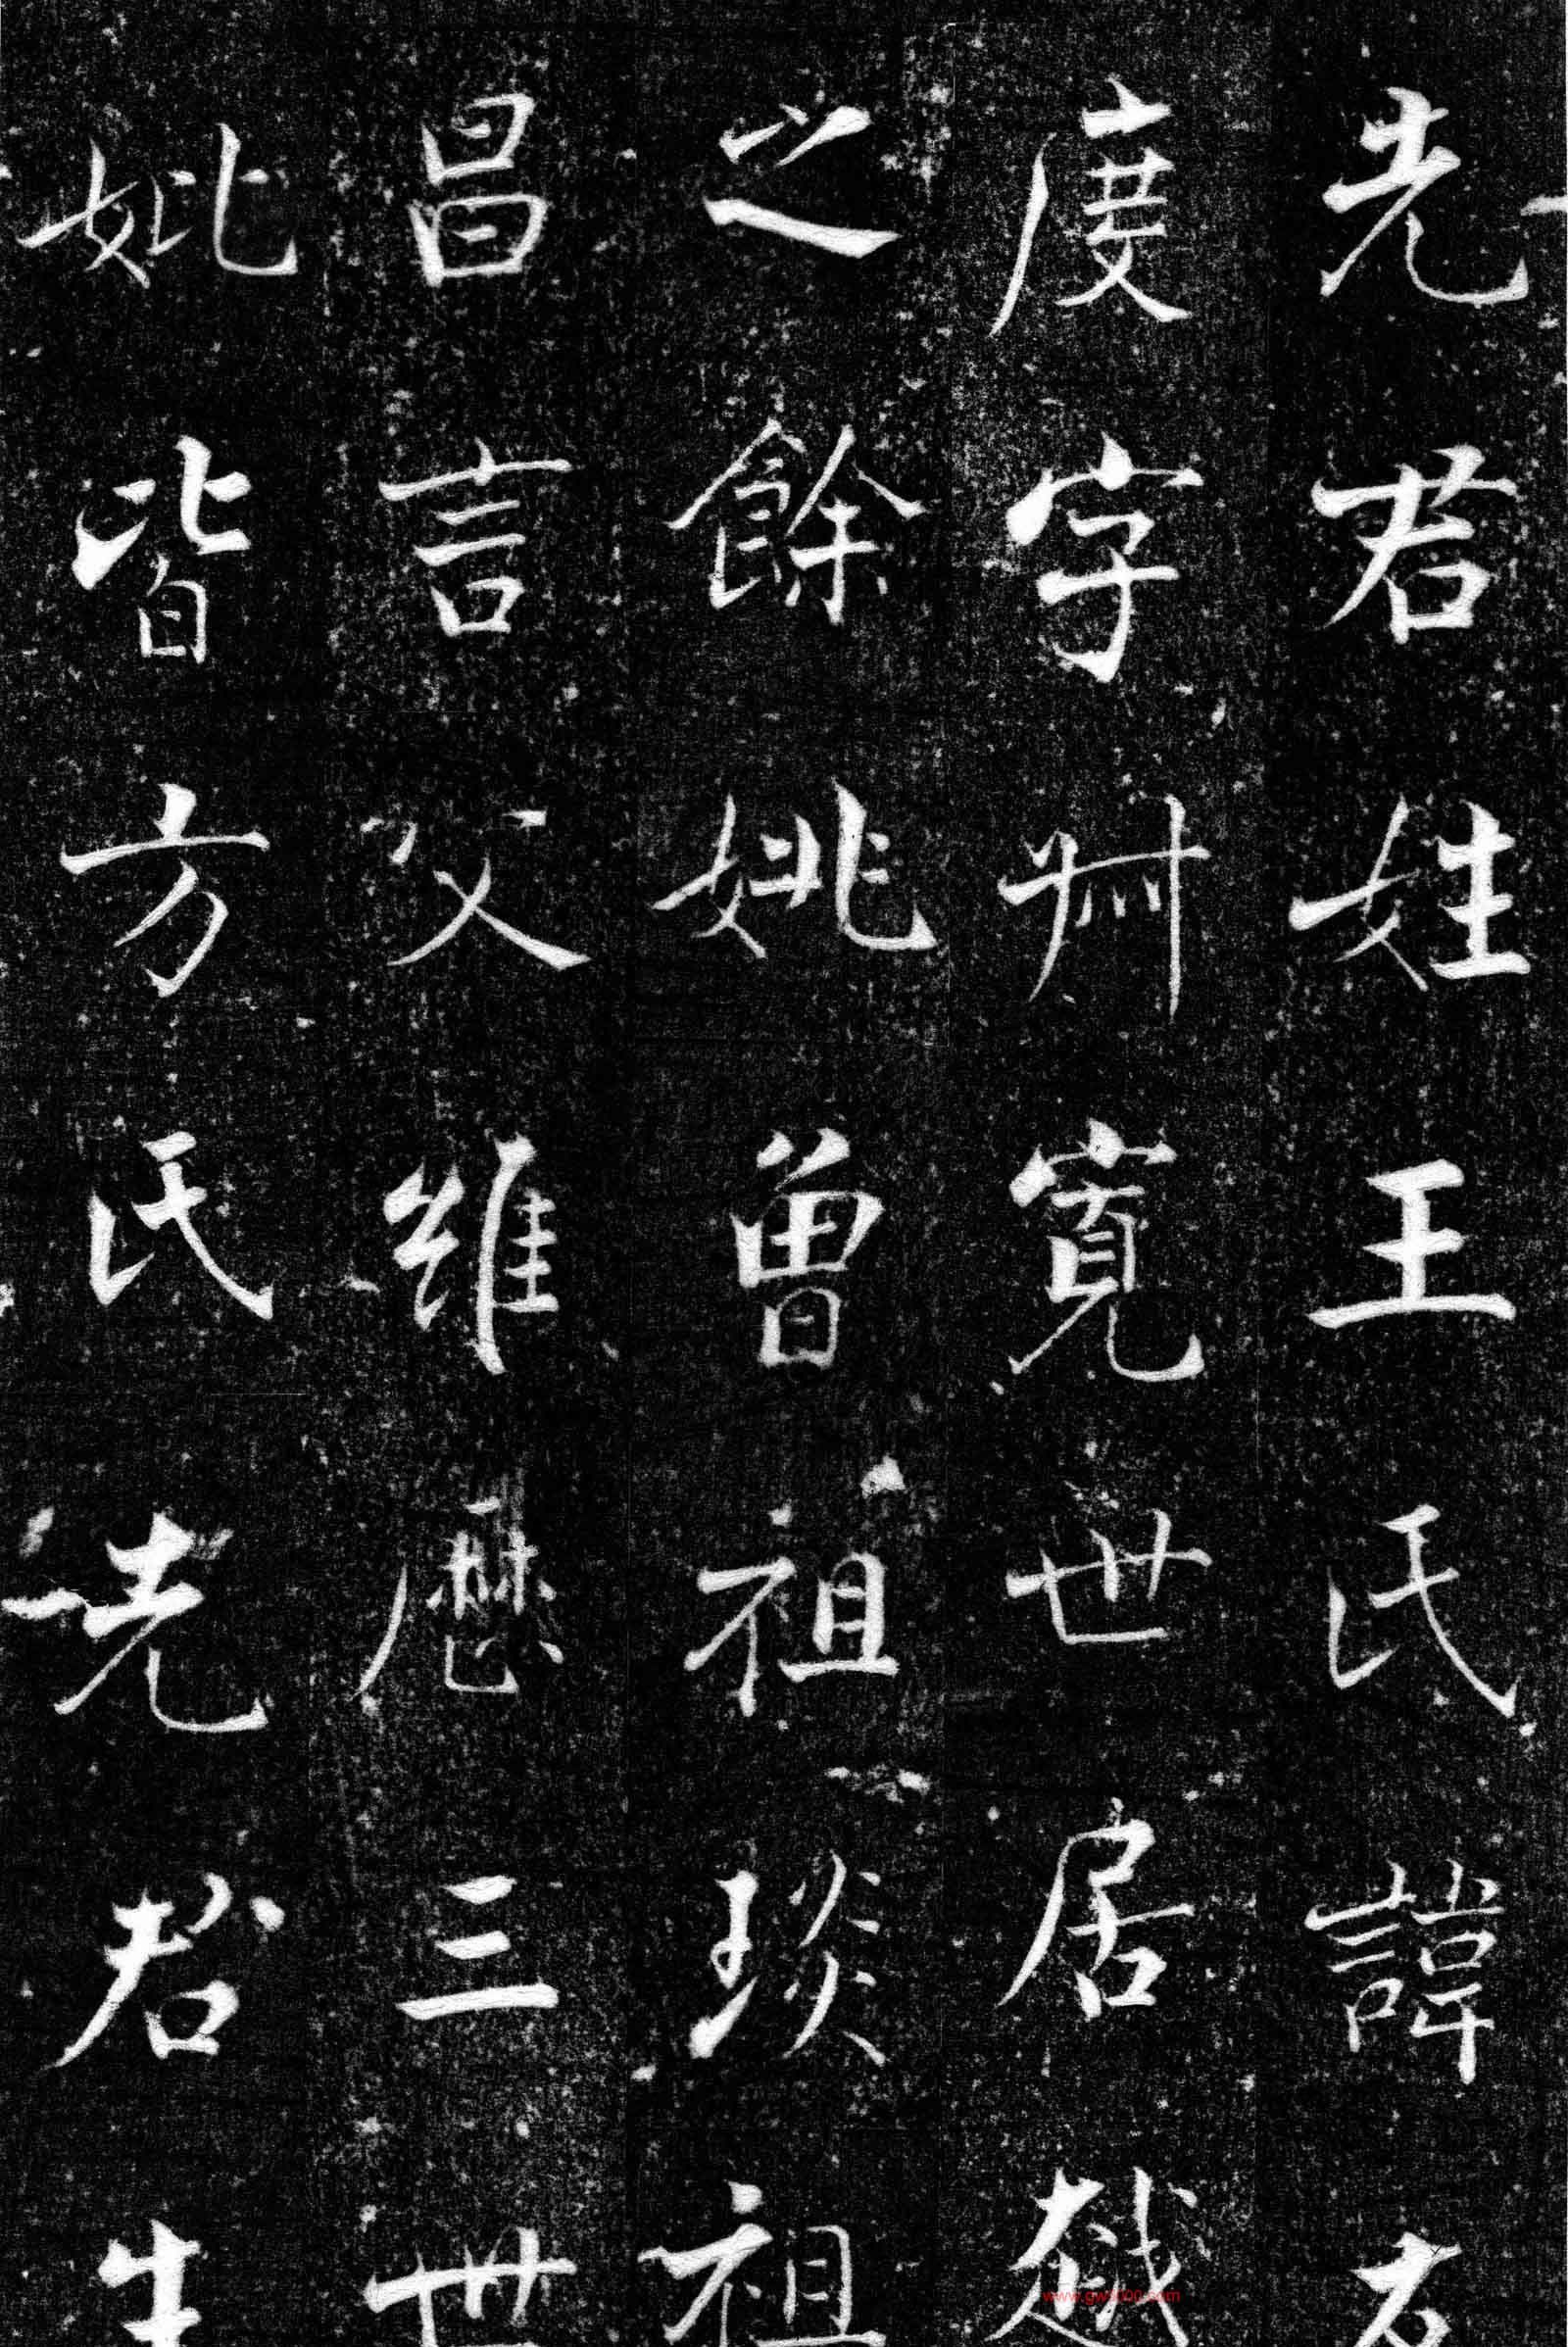 先君姓王氏諱有
度字卅寬世居越
之餘姚曾祖琰祖
昌言父維歷三世
妣皆方氏先君生
www.gw1000.com